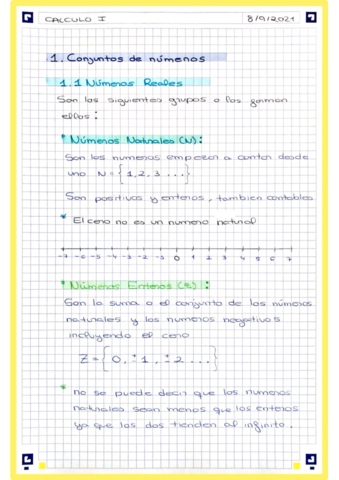 CALCULO I 8/9/2021
1. Conjuntos de números
1.1 Números Reales
Son los siguientes grupos o los forman
ellos:
* Números Naturales (N):
Son los numeros empiezan a contar desde
uno N = { 1, 2, 3 ... }
Son positivos y enteros, tambien contables
* El cero no es un numero natural
-7 -6 -5 -4 -3 -2 -1 0 1 2 3 4 5 6 7
* Números Enteros (Z):
Son la suma o el conjunto de los números
naturales y los numeros negativos
incluyendo el cero
Z = { 0, ±1, ±2 ... }
* no se puede decir que los numeros
naturales sean menos que los enteros
ya que los dos tienden al infinito.